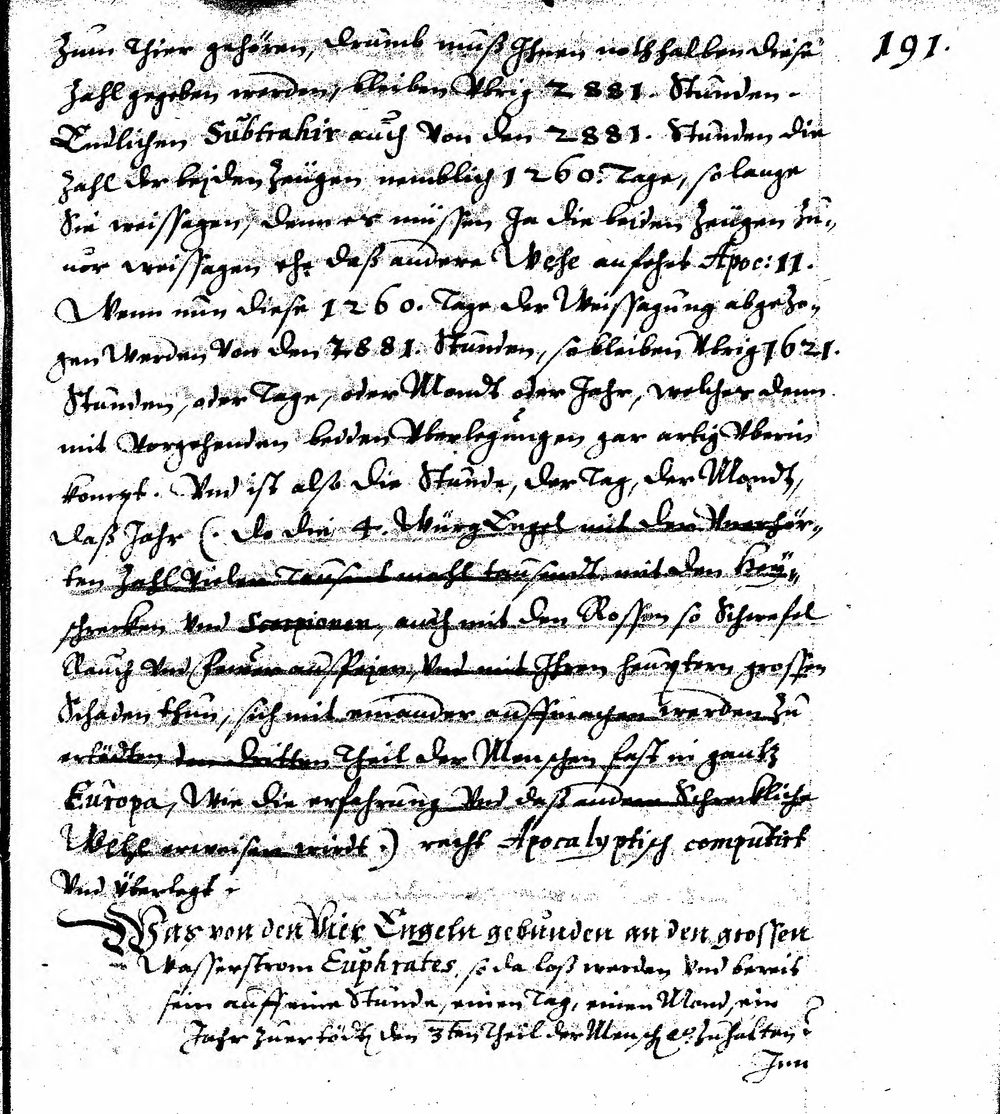 191.
Zum Thier gehören, drumb muß Ihnen nothhalben diese
Zahl gegeben werden, bleiben Vbrig 2881. Stunden.
Endlichen Subtrahir auch Von den 2881. Stunden die
Zahl der beyden Zeügen nemblich 1260. Tage, so lange
Sie weissagen, denn es müssen Ja die beiden Zeügen zu-
uor weissagen ehe daß andere Wehe anfehet Apoc: 11.
Wenn nun diese 1260. Tage der Weissagung abgezo-
gen Werden Von den 2881. Stunden, so bleiben Vbrig 1621.
Stunden, oder Tage, oder Mondt oder Jahr, welches denn
mit Vorgehenden beeden Vberlegungen gar artig Vberein
kompt. Vnd ist also die Stunde, der Tag, der Mondt,
daß Jahr (. do die 4. Würg Engel mit der Vnerhör-
ten Zahl Vielen Tausent mahl tausendt, mit den Hey-
schrecken Vnd Scorpionen, auch mit den Rossen so Schwefel
Rauch Vnd Feuer aus Speien, Vnd mit Ihren heuptern grossen
Schaden thun, sich mit einander auffmachen werden Zu
ertödten den dritten Theil der Menschen fast in gantz
Europa, Wie die erfahrung Vnd daß andere Schreckliche
Wehe erweisen wirdt .) recht Apocalyptisch computirt
Vnd Vberlegt.
Was von den Vier Engeln gebunden an den grossen
Wasserstrom Euphrates, so da loß werden Vnd bereit
sein auff eine Stunde, einen Tag, einen Mond, ein
Jahr Zuertödt den 3ten Theil der Mensch Zuhalten?
Inn